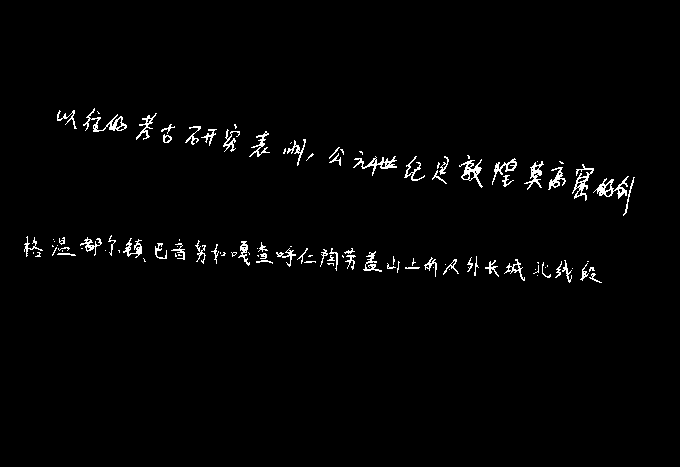 以往的考古研究表明，公元4世纪是敦煌莫高窟的创
格温都尔镇巴音努如嘎查呼仁陶劳盖山上的汉外长城北线段